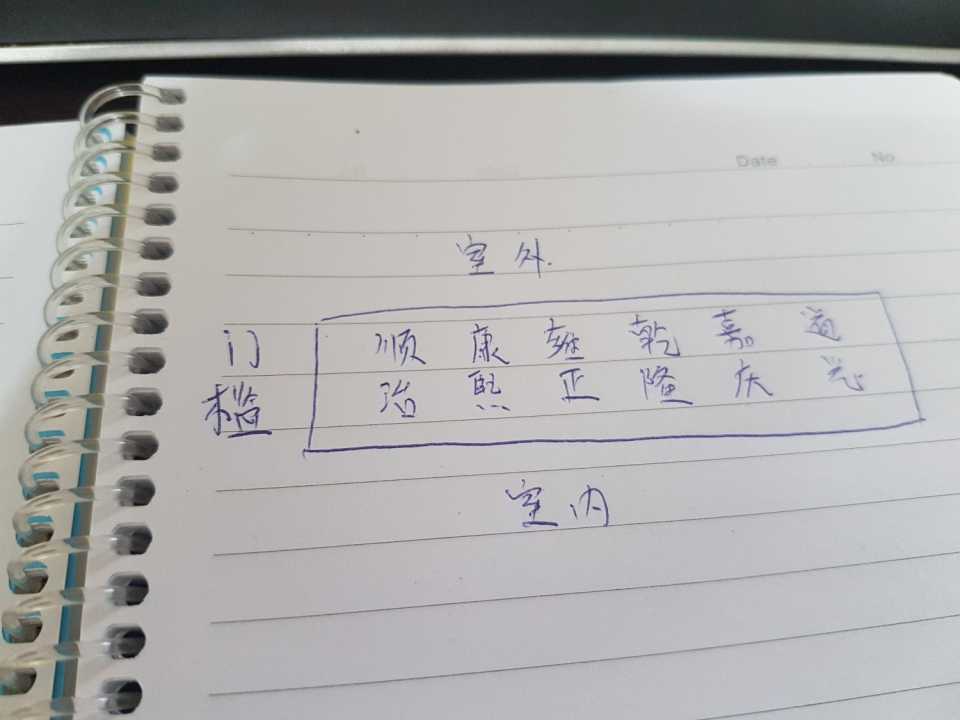 Date No
室外.
门 顺 康 雍 乾 嘉 道
槛 治 熙 正 隆 庆 光
室内